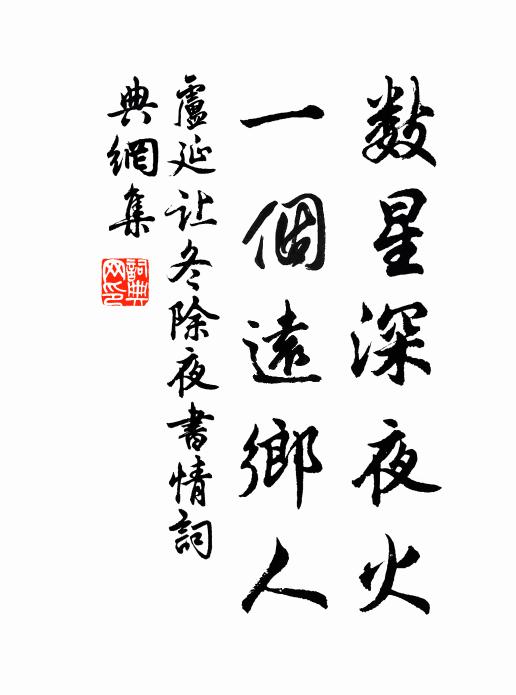 数星深夜火
一個遠鄉人
盧延让冬除夜書情詞
典網集
詞典网印